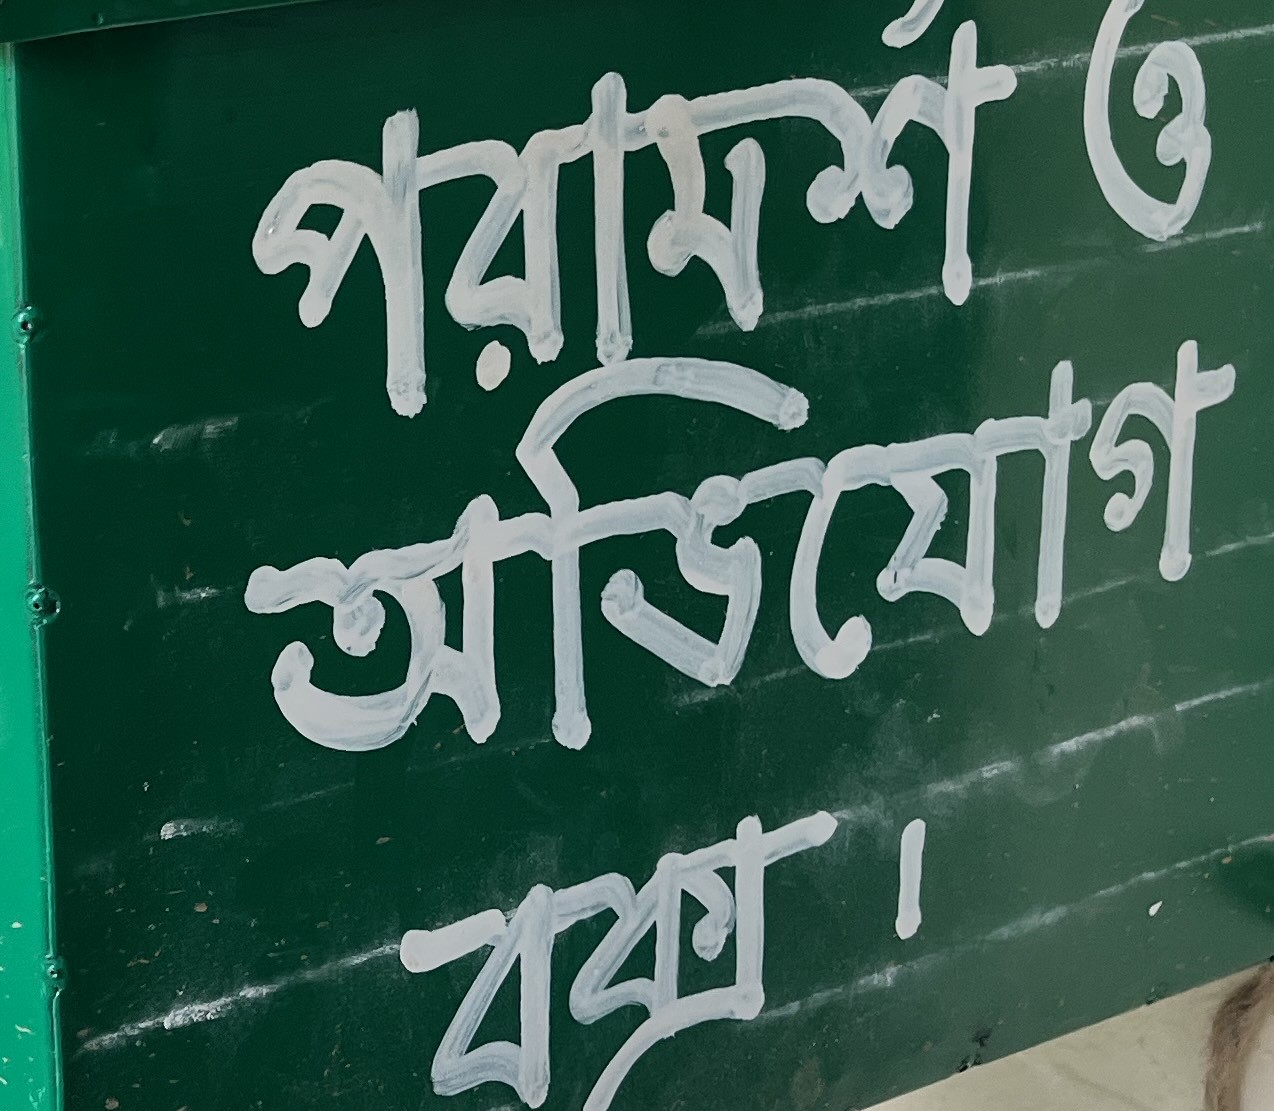 পরামর্শ ও
অভিযোগ
বক্স ।